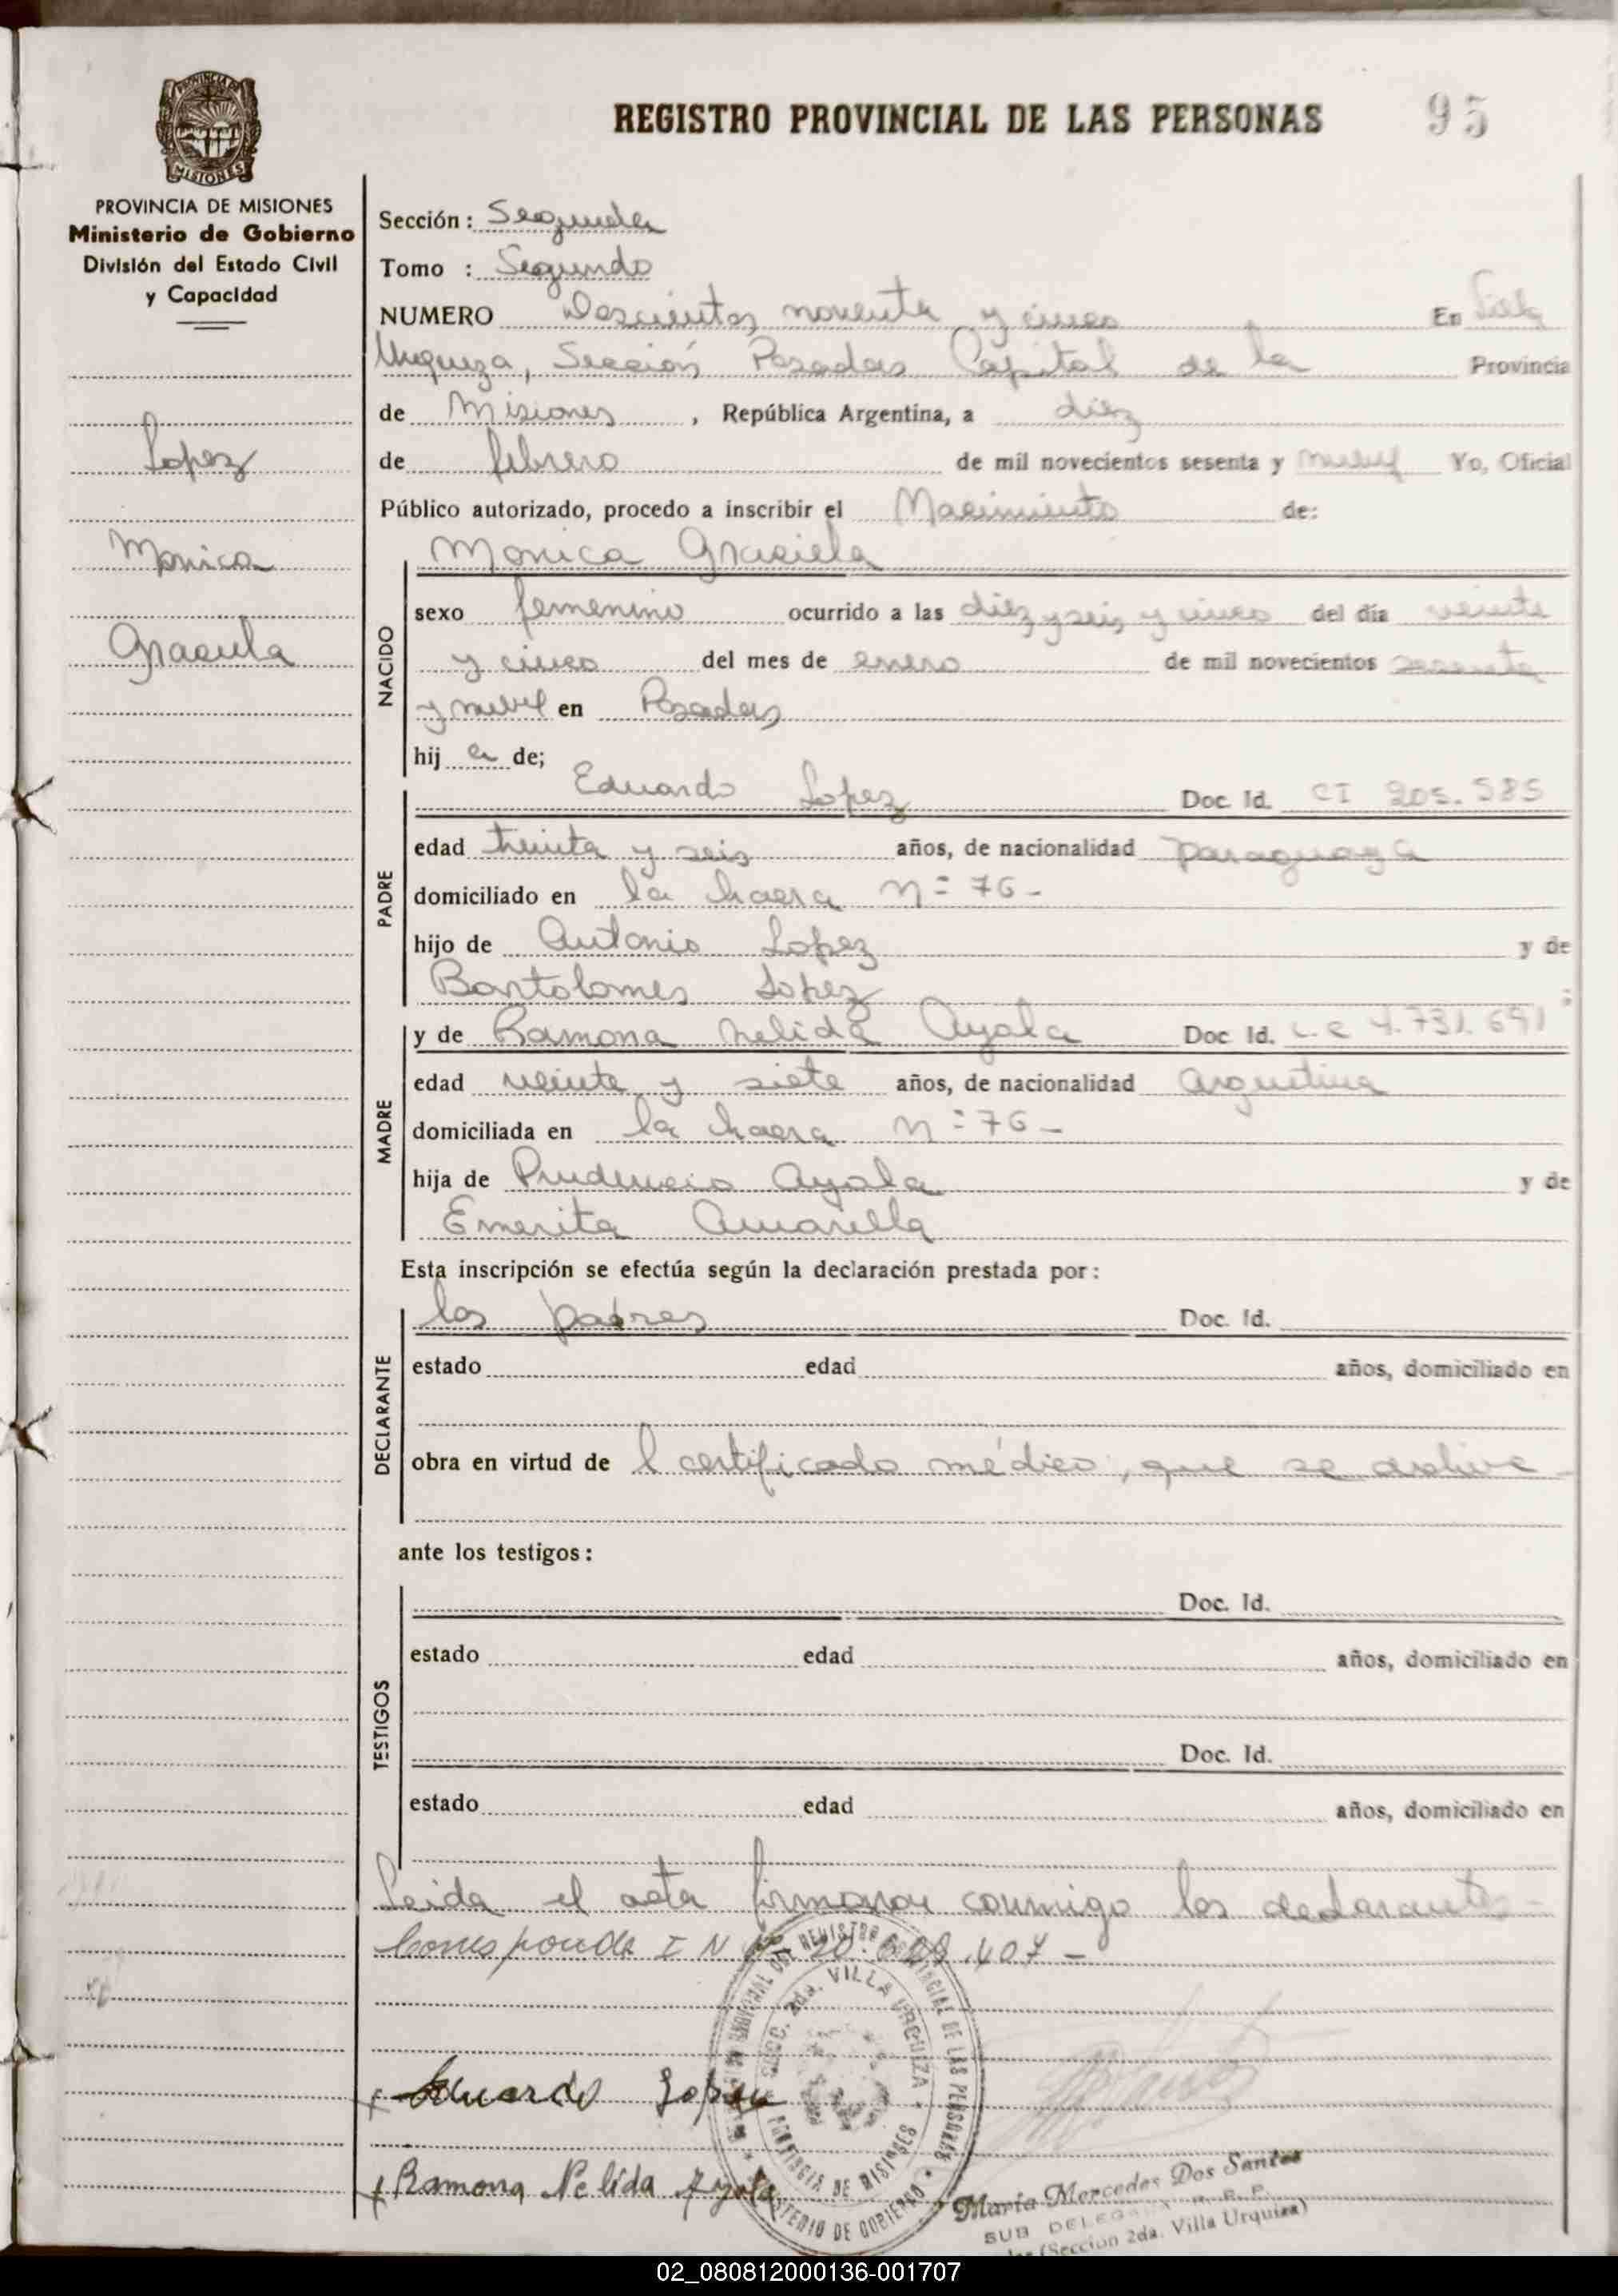 REGISTRO PROVINCIAL DE LAS PERSONAS 95
PROVINCIA DE MISIONES
MISIONES
PROVINCIA DE MISIONES
Ministerio de Gobierno
División del Estado Civil
y Capacidad
Lopez
Monica
Graciela
Sección: Segunda
Tomo : Segundo
NUMERO Doscientos noventa y cinco En Villa
Urquiza, Sección Posadas Capital de la Provincia
de Misiones, República Argentina, a diez
de febrero de mil novecientos sesenta y nueve Yo, Oficial
Público autorizado, procedo a inscribir el Nacimiento de:
Monica Graciela
NACIDO
sexo femenino ocurrido a las diez y seis y cinco del día veinte
y cinco del mes de enero de mil novecientos sesenta
y nueve en Posadas
hij a de;
PADRE
Eduardo Lopez Doc. Id. CI 205.585
edad treinta y seis años, de nacionalidad paraguaya
domiciliado en la chacra n= 76-
hijo de Antonio Lopez y de
Bartolomes Lopez
MADRE
y de Ramona Nelida Ayala Doc. Id. L.C 4.731.691
edad veinte y siete años, de nacionalidad argentina
domiciliada en la chacra n=76-
hija de Prudencio Ayala y de
Emerita Amarilla
Esta inscripción se efectúa según la declaración prestada por:
DECLARANTE
los padres Doc. Id.
estado edad años, domiciliado en
obra en virtud de l certificado médico, que se archive-
ante los testigos:
TESTIGOS
Doc. Id.
estado edad años, domiciliado en
Doc. Id.
estado edad años, domiciliado en
Leida el acta firmaron conmigo los declarantes-
Corresponde I N .407-
SECC. 2da. VILLA URQUIZA
REGISTRO PROVINCIAL DE LAS PERSONAS
PROVINCIA DE MISIONES
MINISTERIO DE GOBIERNO
Eduardo Lopez
Ramona Nelida Ayala
Maria Mercedes Dos Santos
SUB DELEGADA R. P.
(Sección 2da. Villa Urquiza)
02_080812000136-001707